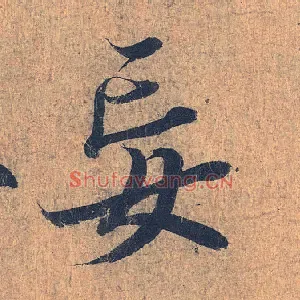 妄
Shufawang.CN